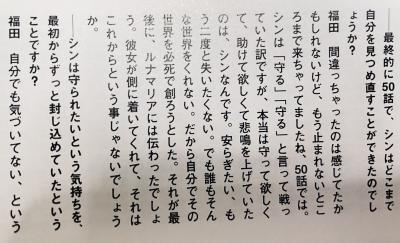 ――最終的に50話で、シンはどこまで
自分を見つめ直すことができたのでし
ょうか？
福田　間違っちゃったのは感じてたか
もしれないけど、もう止まれないとこ
ろまで来ちゃってましたね、50話では。
シンは「守る」「守る」と言って戦っ
ていた訳ですが、本当は守って欲しく
て、助けて欲しくて悲鳴を上げていた
のは、シンなんです。安らぎたい、も
う二度と失いたくない。でも誰もそん
な世界をくれない。だから自分でその
世界を必死で創ろうとした。それが最
後に、ルナマリアには伝わったでしょ
う。彼女が側に着いてくれて、それは
これからという事じゃないでしょう
か。
――シンは守られたいという気持ちを、
最初からずっと封じ込めていたという
ことですか？
福田　自分でも気づいてない、という